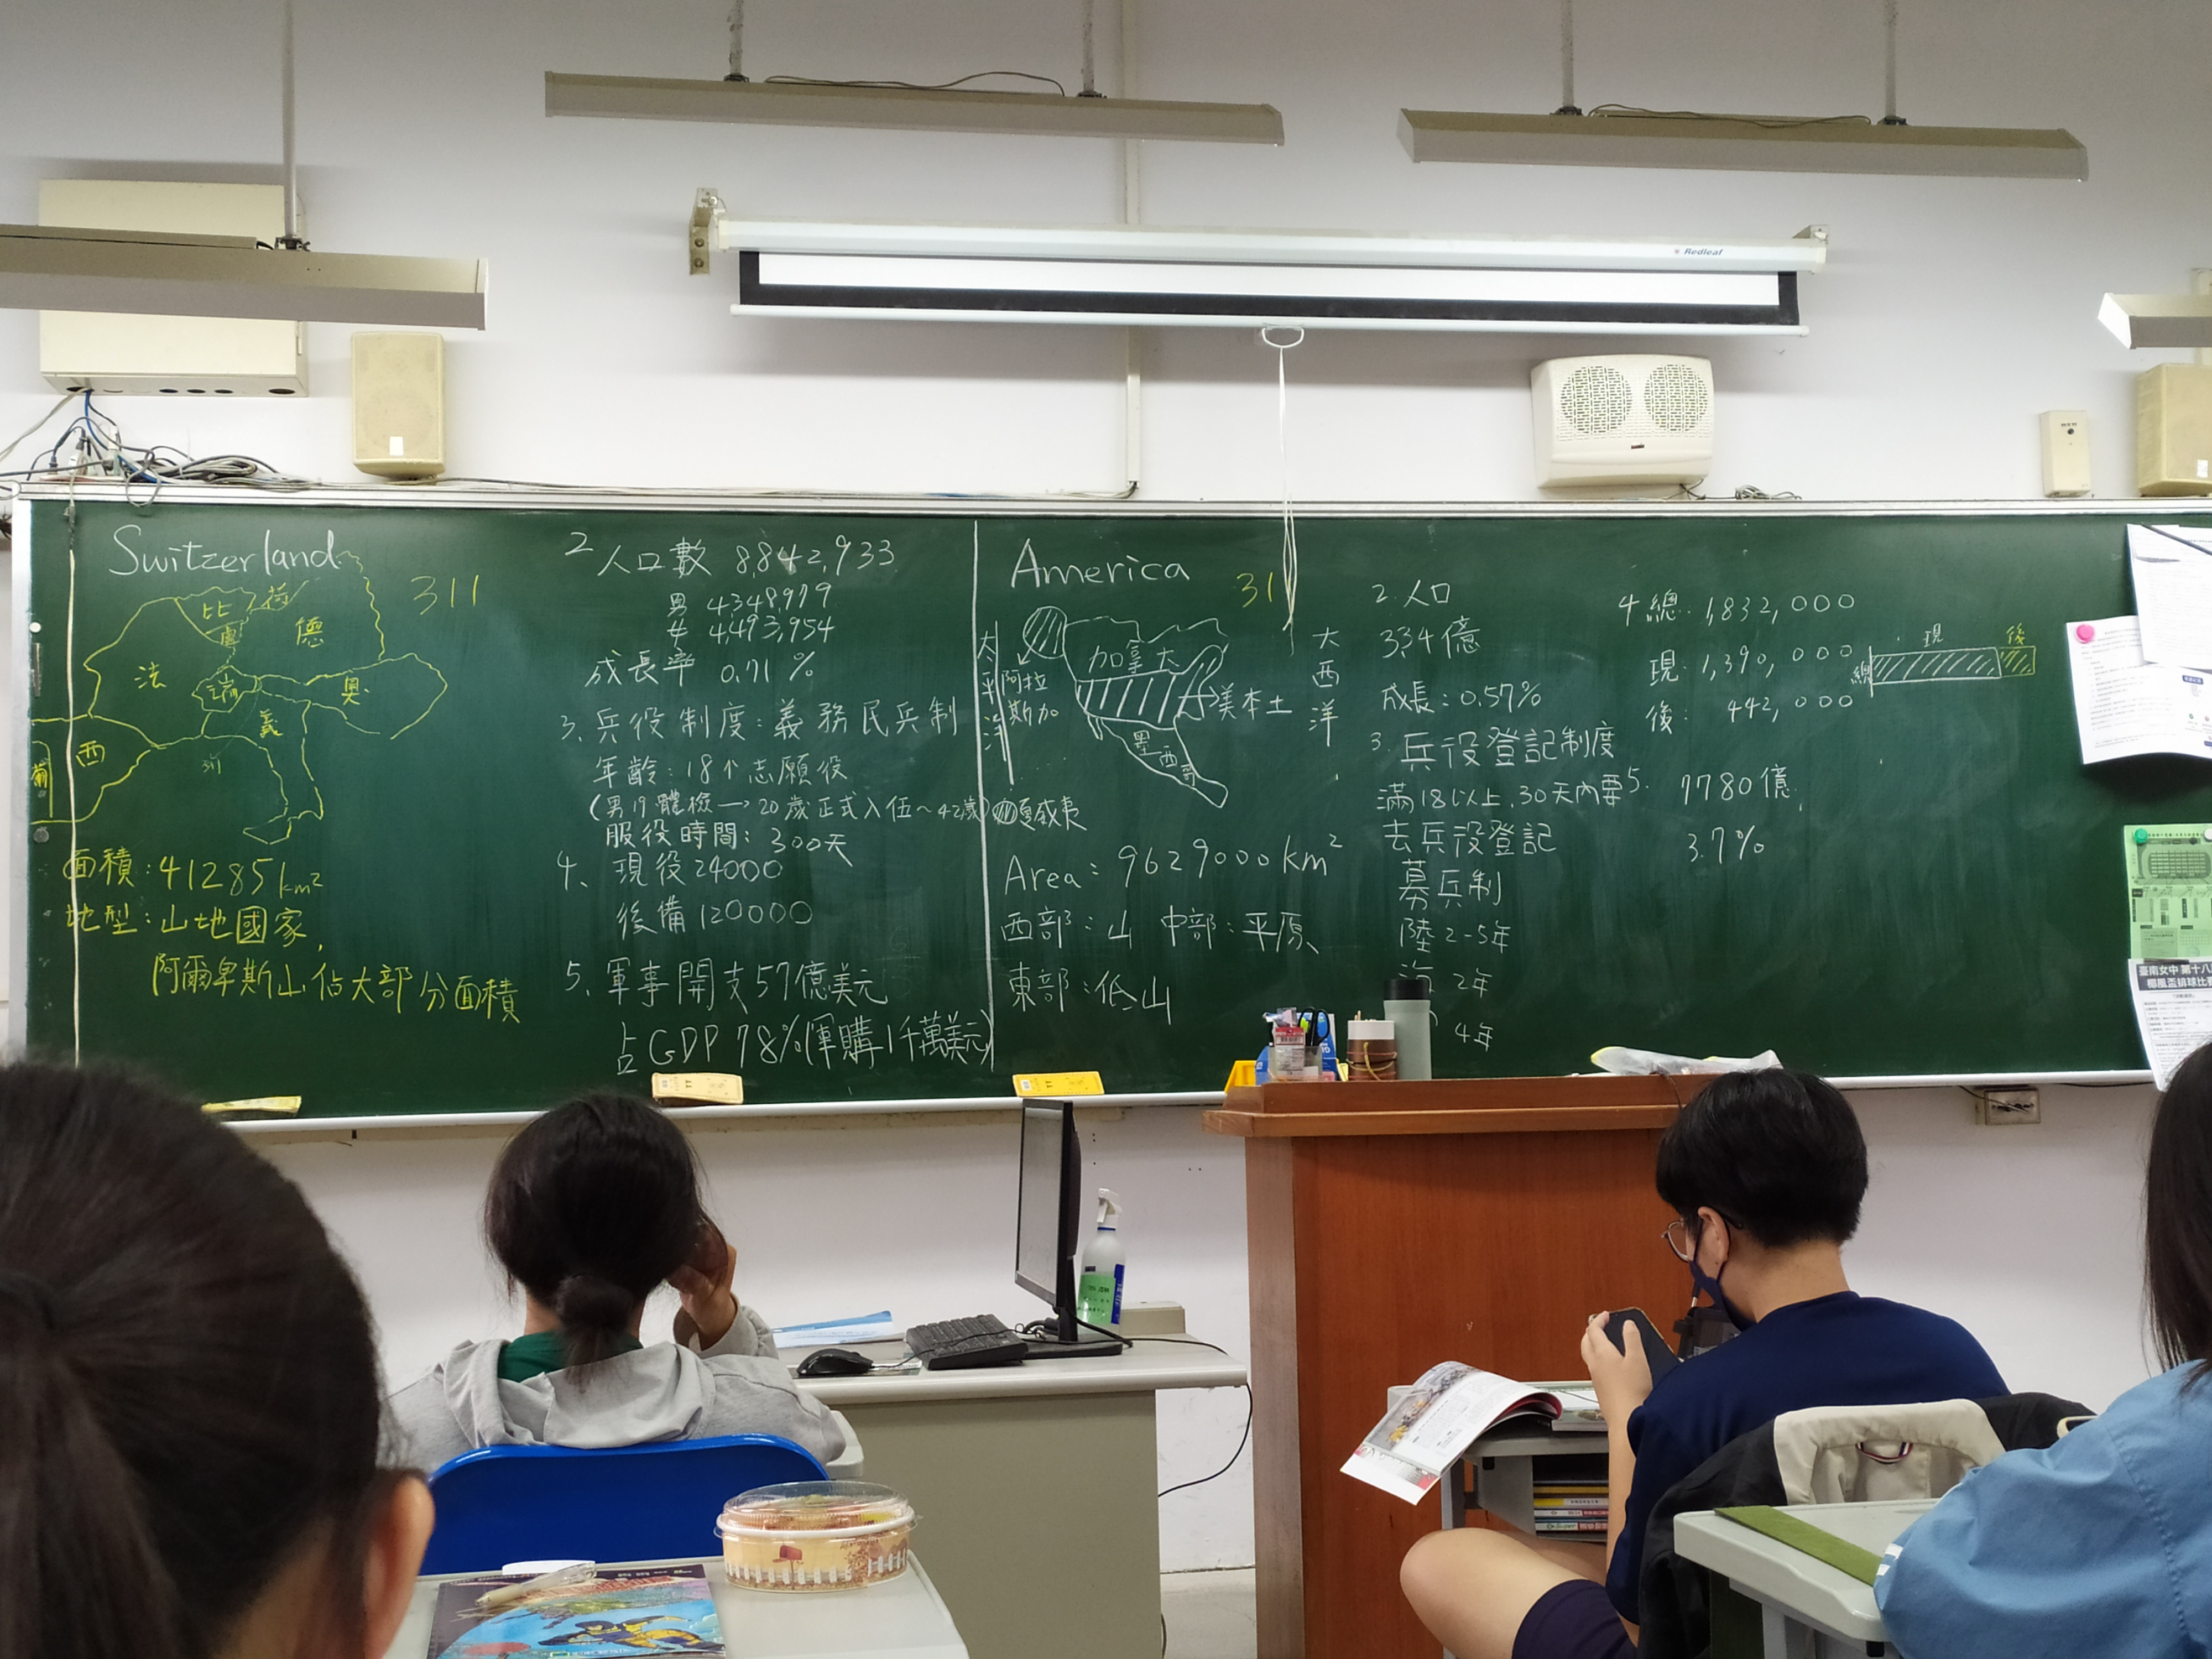 Redleaf
Switzerland
311
比
荷
盧
德
法
瑞
奧
義
西
葡
面積:41285km²
地型:山地國家,
阿爾卑斯山佔大部分面積
2 人口數 8,842,933
男 4348979
女 4,493,954
成長率 0.71 %
3、兵役制度:義務民兵制
年齡:18个志願役
(男19體檢→20歲正式入伍~42歲)
服役時間:300天
4、現役24000
後備120000
5、軍事開支57億美元
占GDP 78%(軍購1千萬美元)
America
31
太平洋
阿拉斯加
加拿大
美本土
墨西哥
大西洋
夏威夷
Area:9629000km²
西部:山 中部:平原
東部:低山
2.人口
3.34億
成長:0.57%
3.兵役登記制度
滿18以上,30天內要
去兵役登記
募兵制
陸2-5年
海 2年
4年
4.總:1,832,000
現:1,390,000
後:442,000
總
現
後
5. 7780億,
3.7%
臺南女中 第十八
椰風盃排球比賽